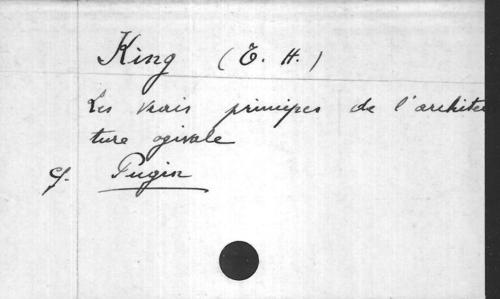 King (T. H.)
Les vrais principes de l'architec
ture ogivale
cf. Pugin